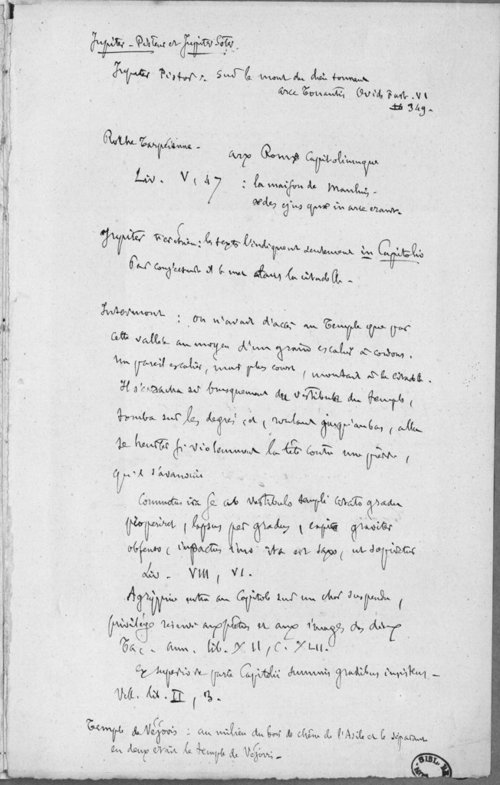 Jupiter - Pistor et Jupiter Soter
Jupiter Pistor : sur le mont du dieu tonnant
arce Tonantis Ovid. Fast. VI
349 -
Roche Tarpéienne - arx Romæ Capitoliumque
Liv. V, 47 : la maison de Manlius -
ædes ejus quæ in arce erant -
Jupiter : les textes l'indiquent seulement in Capitolio
Par conjecture il le met dans la citadelle -
Intermont : on n'avait d'accès au Temple que par
cette vallée au moyen d'un grand escalier à cordons.
Un pareil escalier, mais plus court, montait à la citadelle.
Il s'arracha si brusquement du vestibule du temple,
tomba sur les degrés et, roulant jusqu'au bas, alla
se heurter si violemment la tête contre une pierre,
qu'il s'évanouit
Commotus ira se ab vestibulo templi citato gradu
proriperet, lapsus per gradus, capite graviter
offenso, impactus imo ita est saxo, ut sopiretur
Liv. - VIII, VI.
Agrippine entra au Capitole sur un char suspendu,
privilège réservé aux prêtres et aux images des dieux
Tac. ann. lib. XII, C. XLII.
Ex superiore parte Capitolii summis gradibus insistens -
Vell. lib. II, 3.
Temple de Véjovis : au milieu du bois de chêne de l'Asile et le séparant
en deux était le temple de Véjovis -
BIBL.